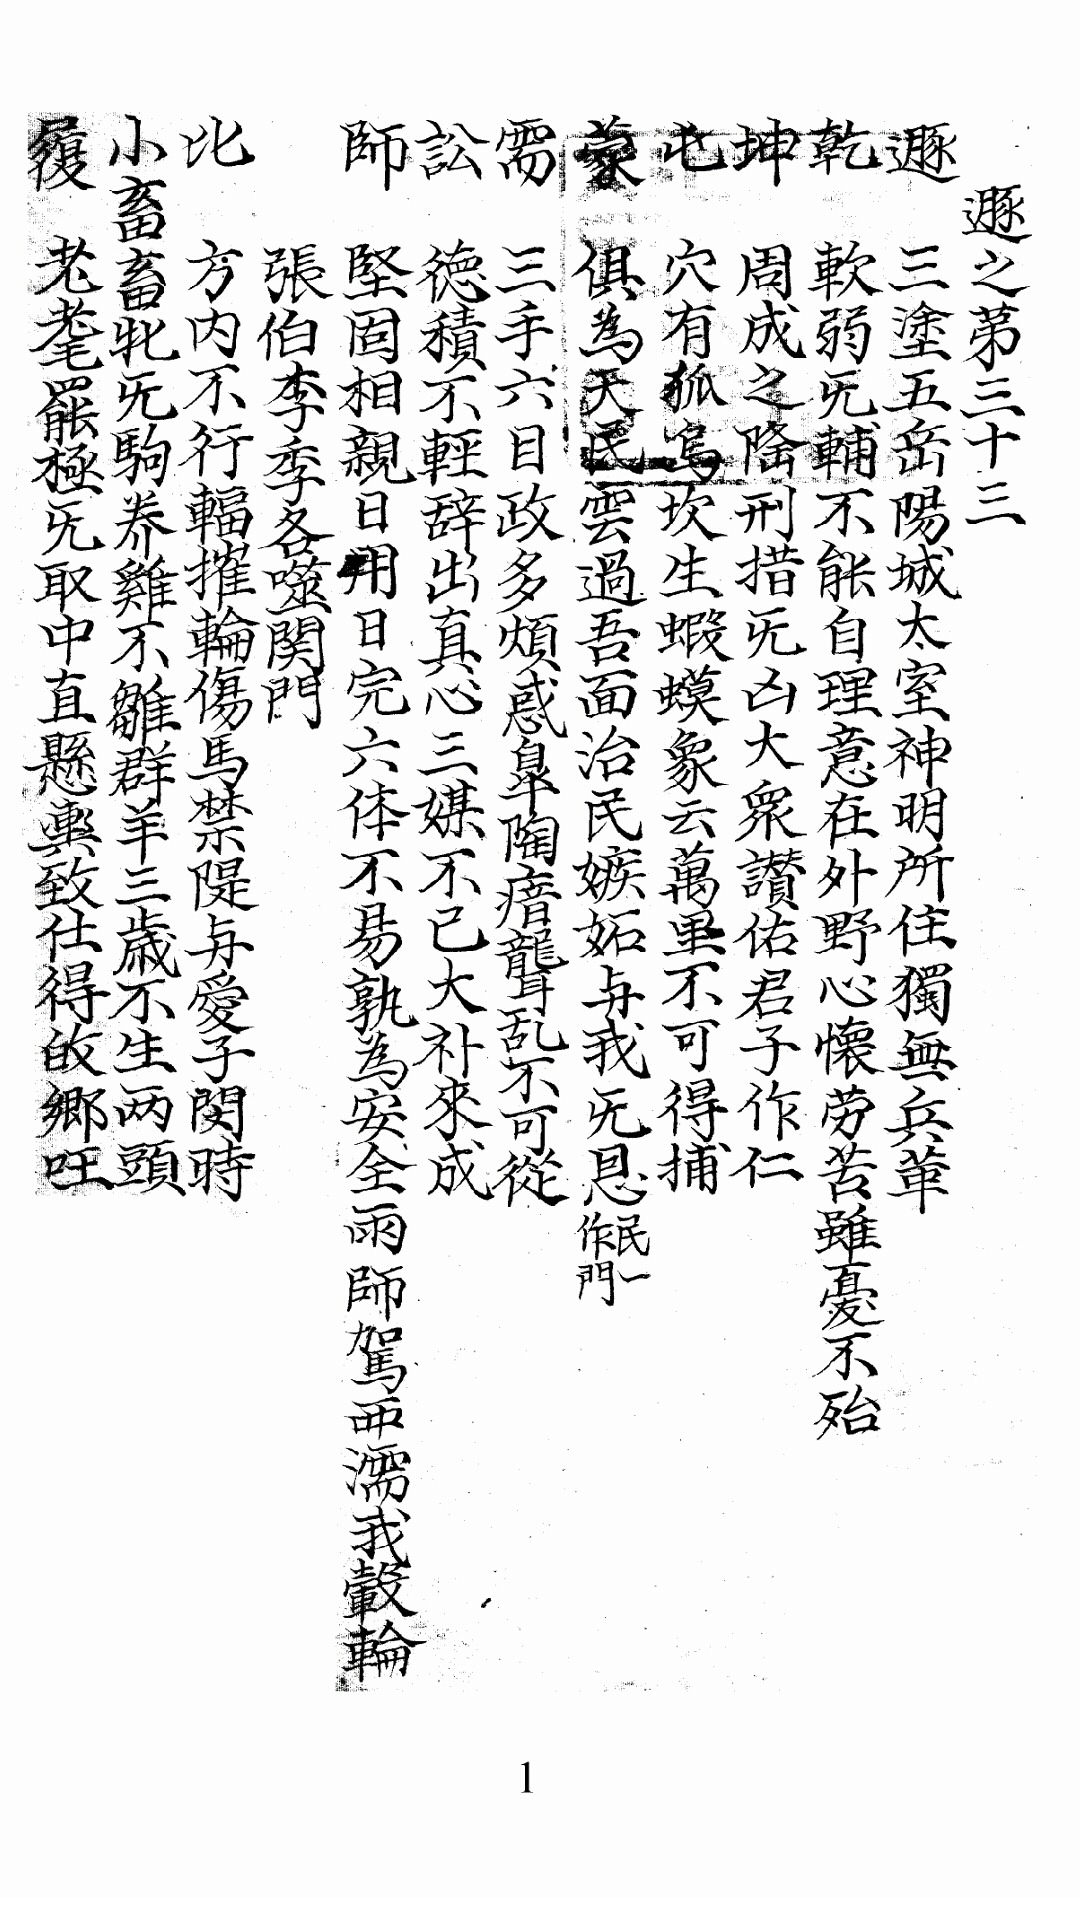 遯之第三十三
遯 三塗五岳陽城太室神明所住獨無兵革
乾 軟弱无輔不能自理意在外野心懷劳苦雖憂不殆
坤 周成之隆刑措无凶大衆讃佑君子作仁
屯 穴有狐烏坎生蝦蟆象云萬里不可得捕
蒙 俱為天民雲過吾面治民嫉妬与我无恩民一作門
需 三手六目政多煩惑皐陶瘖聾乱不可從
訟 德積不輕辞出真心三媒不已大补來成
師 堅固相親日用日完六体不易孰為安全雨師駕西濡我轂輪
張伯李季各噬関門
比 方内不行輻摧輪傷馬禁隄与愛子閔時
小畜 畜牝无駒养雞不雛群羊三歳不生两頭
履 老耄罷極无取中直懸輿致仕得故鄉旺
1